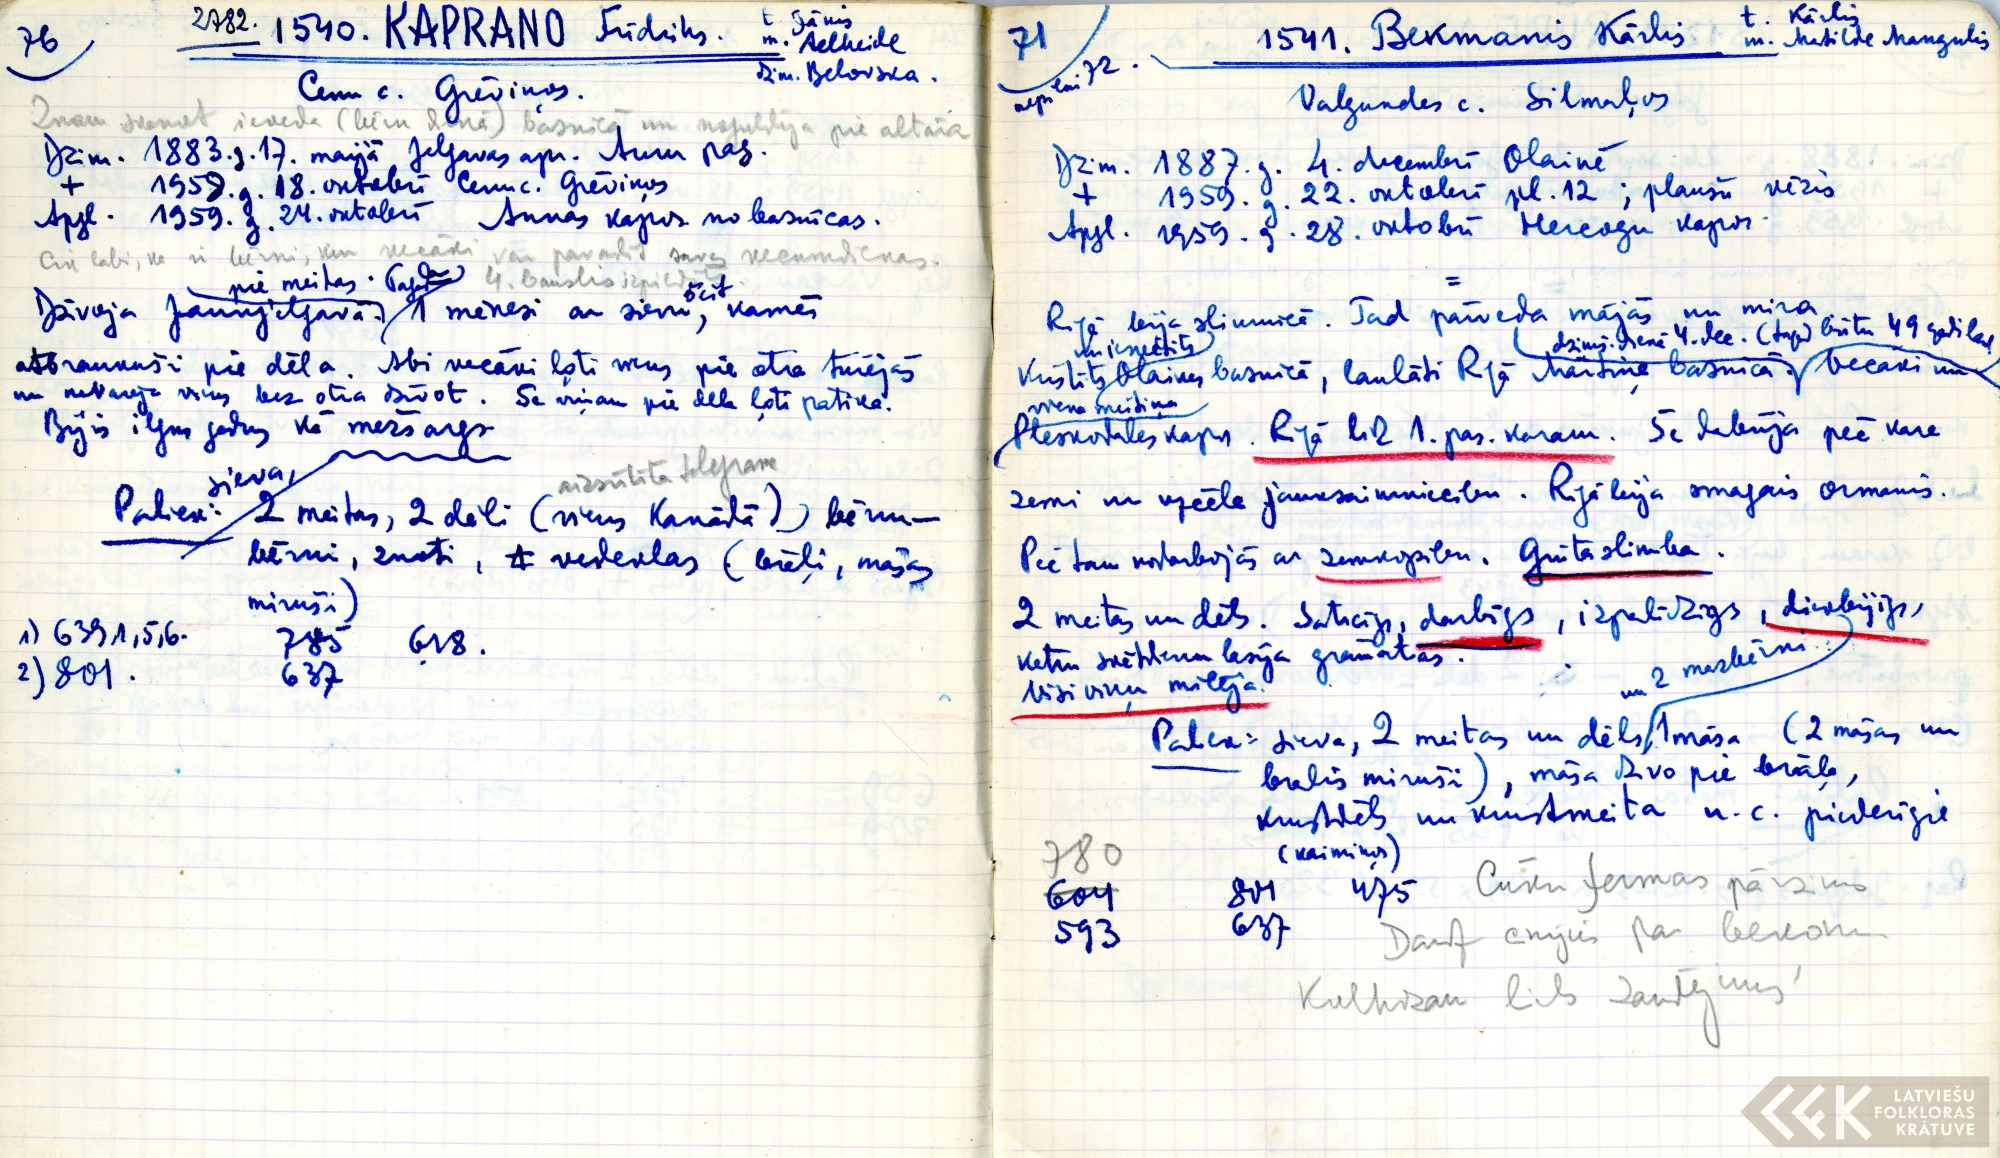 76
2782. 1540. KAPRANO Frīdrihs. t. Jānis
m. Adelheide
dzim. Belovska.
Cenu c. Grēviņos.
ieveda (bēru dienā) baznīcā un noguldīja pie altāra
Dzim. 1883. g. 17. maijā Jelgavas apr. Auru pag.
+ 1959. g. 18. oktobrī Cenu c. Grēviņos
Apgl. 1959. g. 24. oktobrī Annas kapos no baznīcas.
Cik labi, ka ir bērni, kur vecāki var pavadīt savas vecumdienas.
4. bauslis izpildīts.
pie meitas. Tagad
Dzīvoja Jaunjelgavā. 1 mēnesi ar sievu šeit, kamēr
atbraukuši pie dēla. Abi vecāki ļoti viens pie otra turējās
un nevarēja viens bez otra dzīvot. Še viņam pie dēla ļoti patika.
Bijis ilgus gadus kā mežsargs
aizsūtīta telegrama
Paliek: sieva, 2 meitas, 2 dēli (viens Kanādā) bērnu-
bērni, znoti, vedeklas (brāļi, māsas
miruši)
1) 639 1,5,6. 785 618.
2) 801. 637
71
nepilni 72.
1541. Bekmanis Kārlis t. Kārlis
m. Matilde Mangulis
Valgundes c. Silmaļos
Dzim. 1887. g. 4. decembrī Olainē
+ 1959. g. 22. oktobrī pl. 12; plaušu vēzis
Apgl. 1959. g. 28. oktobrī Hercogu kapos.
=
Rīgā bija slimnīcā. Tad pārveda mājās un mira
un iesvētīts dzimš. dienā 4. dec. būtu 49 gadi
Kristīts Olaines baznīcā, laulāti Rīgā Mārtiņa baznīcā. Vecāki un
viena meitiņa
Pleskodales kapos. Rīgā līdz 1. pas. karam. Še dabūja pēc kara
zemi un uzcēla jaunsaimniecību. Rīgā bija smagais ormanis.
Pēc tam nodarbojās ar zemkopību. Grūta slimība.
2 meitas un dēls. Saticīgs, darbīgs, izpalīdzīgs, dievbijīgs,
katru svētdienu lasīja grāmatas.
Visi viņu mīlēja.
un 2 mazbērni
Paliek: sieva, 2 meitas un dēls, 1 māsa (2 māsas un
brālis miruši), māsa dzīvo pie brāļa,
krustdēls un krustmeita u. c. piederīgie
(kaimiņos)
780
604 801 475 Cūku fermas pārzinis
593 637 Daudz cīnījies par
Kolhozam liels zaudējums!
LATVIEŠU
FOLKLORAS
KRĀTUVE